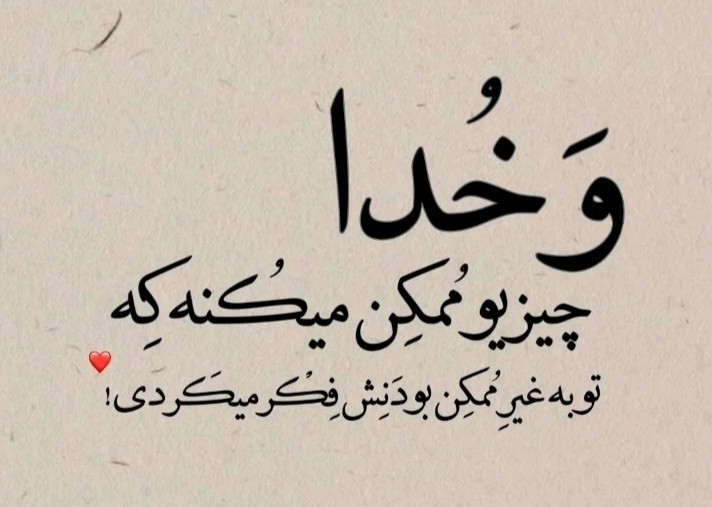 وَ خُدا
چیزیو مُمکِن میکُنه کِه
تو به غیرِ مُمکِن بودَنِش فِکْر میکَردی!